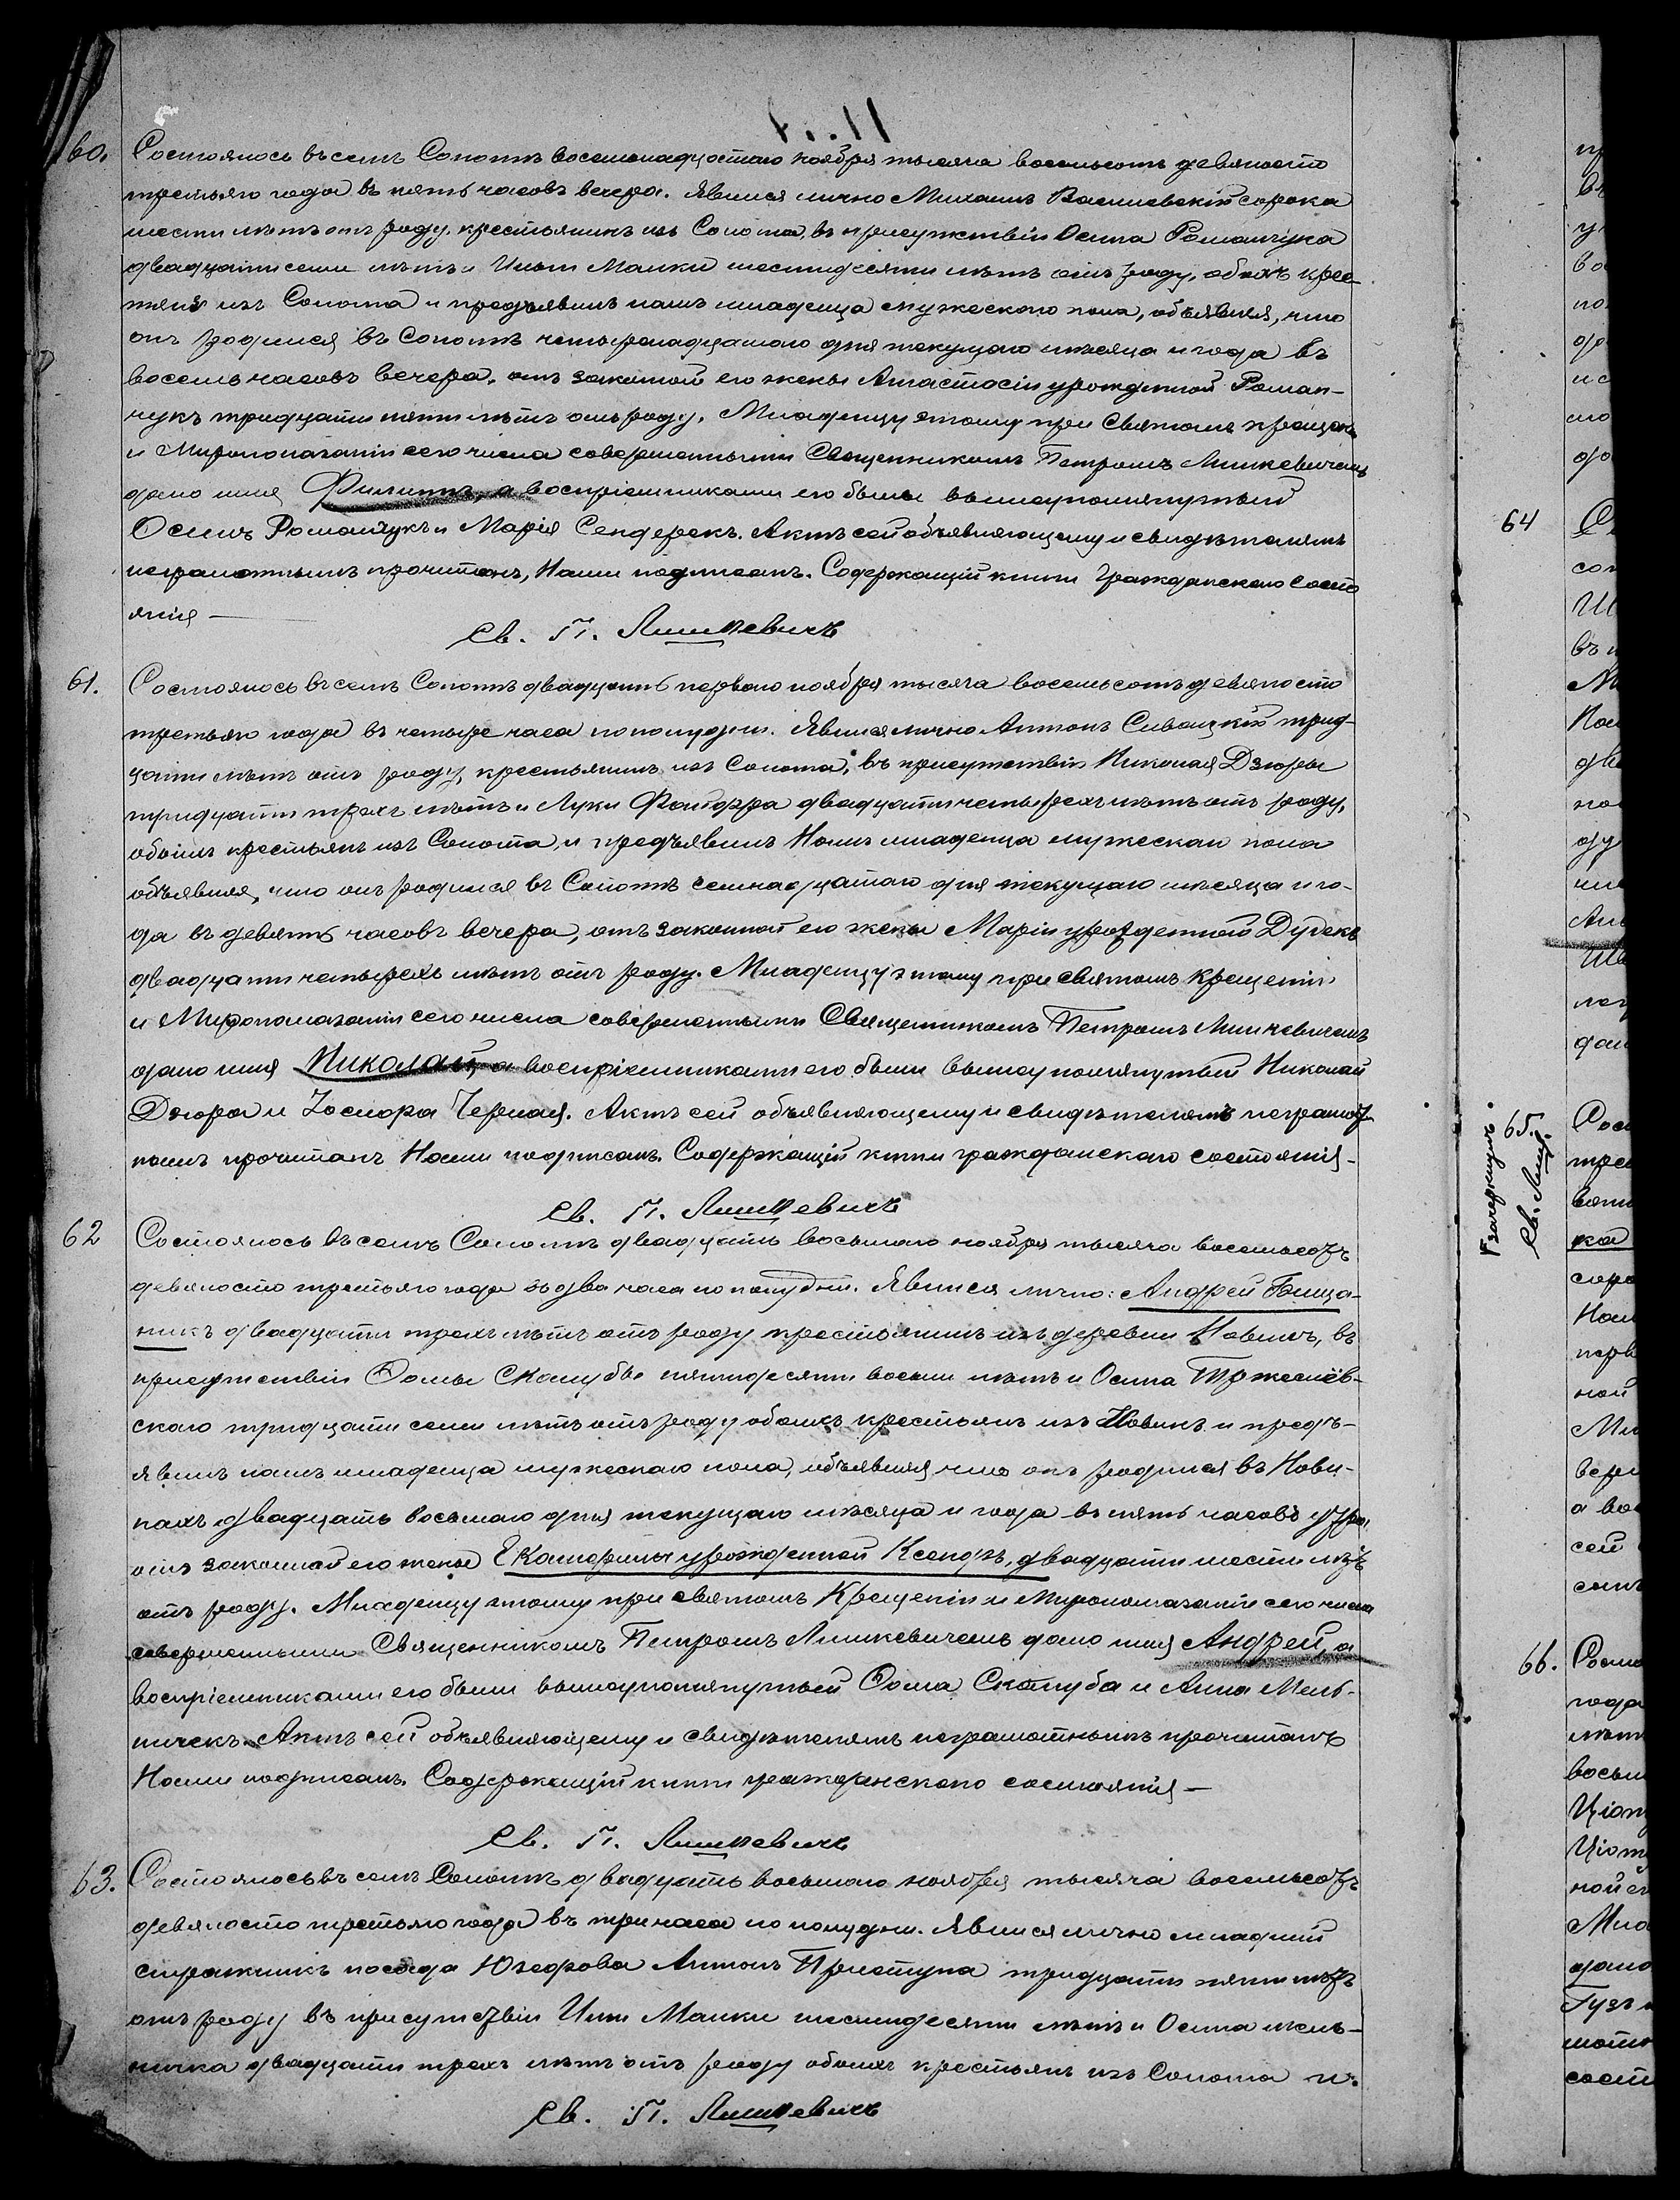 60. Состоялось въ семъ Сопотѣ восемнадцатаго ноября тысяча восемьсотъ девяносто
третьяго года въ пять часовъ вечера. Явился лично Михаилъ Василевскій сорока
шести лѣтъ отъ роду, крестьянинъ изъ Сопота, въ присутствіи Осипа Романчука
двадцати семи лѣтъ и Ильи Малки шестидесяти лѣтъ отъ роду, обоихъ крес-
тянъ изъ Сопота и предъявилъ намъ младенца мужескаго пола, объявляя, что
онъ родился въ Сопотѣ четырнадцатаго дня текущаго мѣсяца и года въ
восемь часовъ вечера, отъ законной его жены Анастасіи урожденной Роман-
чукъ тридцати пяти лѣтъ отъ роду. Младенцу этому при Святомъ крещеніи
и Миропомазаніи сего числа совершенными Священникомъ Петромъ Лишкевичемъ
дано имя Филиппъ, а воспріемниками его были вышеупомянутый
Осипъ Романчукъ и Марія Сендерекъ. Актъ сей объявляющему и свидѣтелямъ
неграмотнымъ прочитанъ, Нами подписанъ. Содержащій книги Гражданскаго Состо
янія —
Св. П. Лишкевичъ
61. Состоялось въ семъ Сопотѣ двадцать перваго ноября тысяча восемьсотъ девяносто
третьяго года въ четыре часа пополудни. Явился лично Антонъ Сивацкій трид-
цати лѣтъ отъ роду, крестьянинъ изъ Сопота, въ присутствіи Николая Дзюры
тридцати трехъ лѣтъ и Луки двадцати четырехъ лѣтъ отъ роду,
обоихъ крестьянъ изъ Сопота, и предъявилъ Намъ младенца мужескаго пола
объявляя, что онъ родился въ Сопотѣ семнадцатаго дня текущаго мѣсяца и го-
да въ девять часовъ вечера, отъ законной его жены Маріи урожденной Дудекъ
двадцати четырехъ лѣтъ отъ роду. Младенцу этому при святомъ Крещеніи
и Миропомазаніи сего числа совершенными Священникомъ Петромъ Лишкевичемъ
дано имя Николай, а воспріемниками его были вышеупомянутый Николай
Дзюра и Черная. Актъ сей объявляющему и свидѣтелямъ неграмот-
нымъ прочитанъ Нами подписанъ. Содержащій книги гражданскаго состоянія —
Св. П. Лишкевичъ
62 Состоялось въ семъ Сопотѣ двадцать восьмаго ноября тысяча восемьсотъ
девяносто третьяго года въ два часа по полудни. Явился лично: Андрей Бища-
никъ двадцати трехъ лѣтъ отъ роду крестьянинъ изъ деревни Новинъ, въ
присутствіи Ѳомы Скалубы пятидесяти восьми лѣтъ и Осипа Тржесіёв-
скаго тридцати семи лѣтъ отъ роду обоихъ крестьянъ изъ Новинъ и предъ-
явилъ намъ младенца мужескаго пола, объявляя, что онъ родился въ Нови-
нахъ двадцать восьмаго дня текущаго мѣсяца и года въ пять часовъ утра,
отъ законной его жены Екатерины урожденной Ксендзъ, двадцати шести лѣтъ
отъ роду. Младенцу этому при святомъ Крещеніи и Миропомазаніи сего числа
совершенными Священникомъ Петромъ Лишкевичемъ дано имя Андрей, а
воспріемниками его были вышеупомянутый Ѳома Скалуба и Анна Мель-
ничекъ. Актъ сей объявляющему и свидѣтелямъ неграмотнымъ прочитанъ
Нами подписанъ. Содержащій книги гражданскаго состоянія —
Св. П. Лишкевичъ
63. Состоялось въ семъ Сопотѣ двадцать восьмаго ноября тысяча восемьсотъ
девяносто третьяго года въ три часа по полудни. Явился лично младшій
стражникъ посада Юзефова Антонъ Приступа тридцати пяти лѣтъ
отъ роду въ присутствіи Ильи Малки шестидесяти лѣтъ и Осипа мель-
ничка двадцати трехъ лѣтъ отъ роду обоихъ крестьянъ изъ Сопота и
Св. П. Лишкевичъ
64
65.
Св. Лиш.
66.